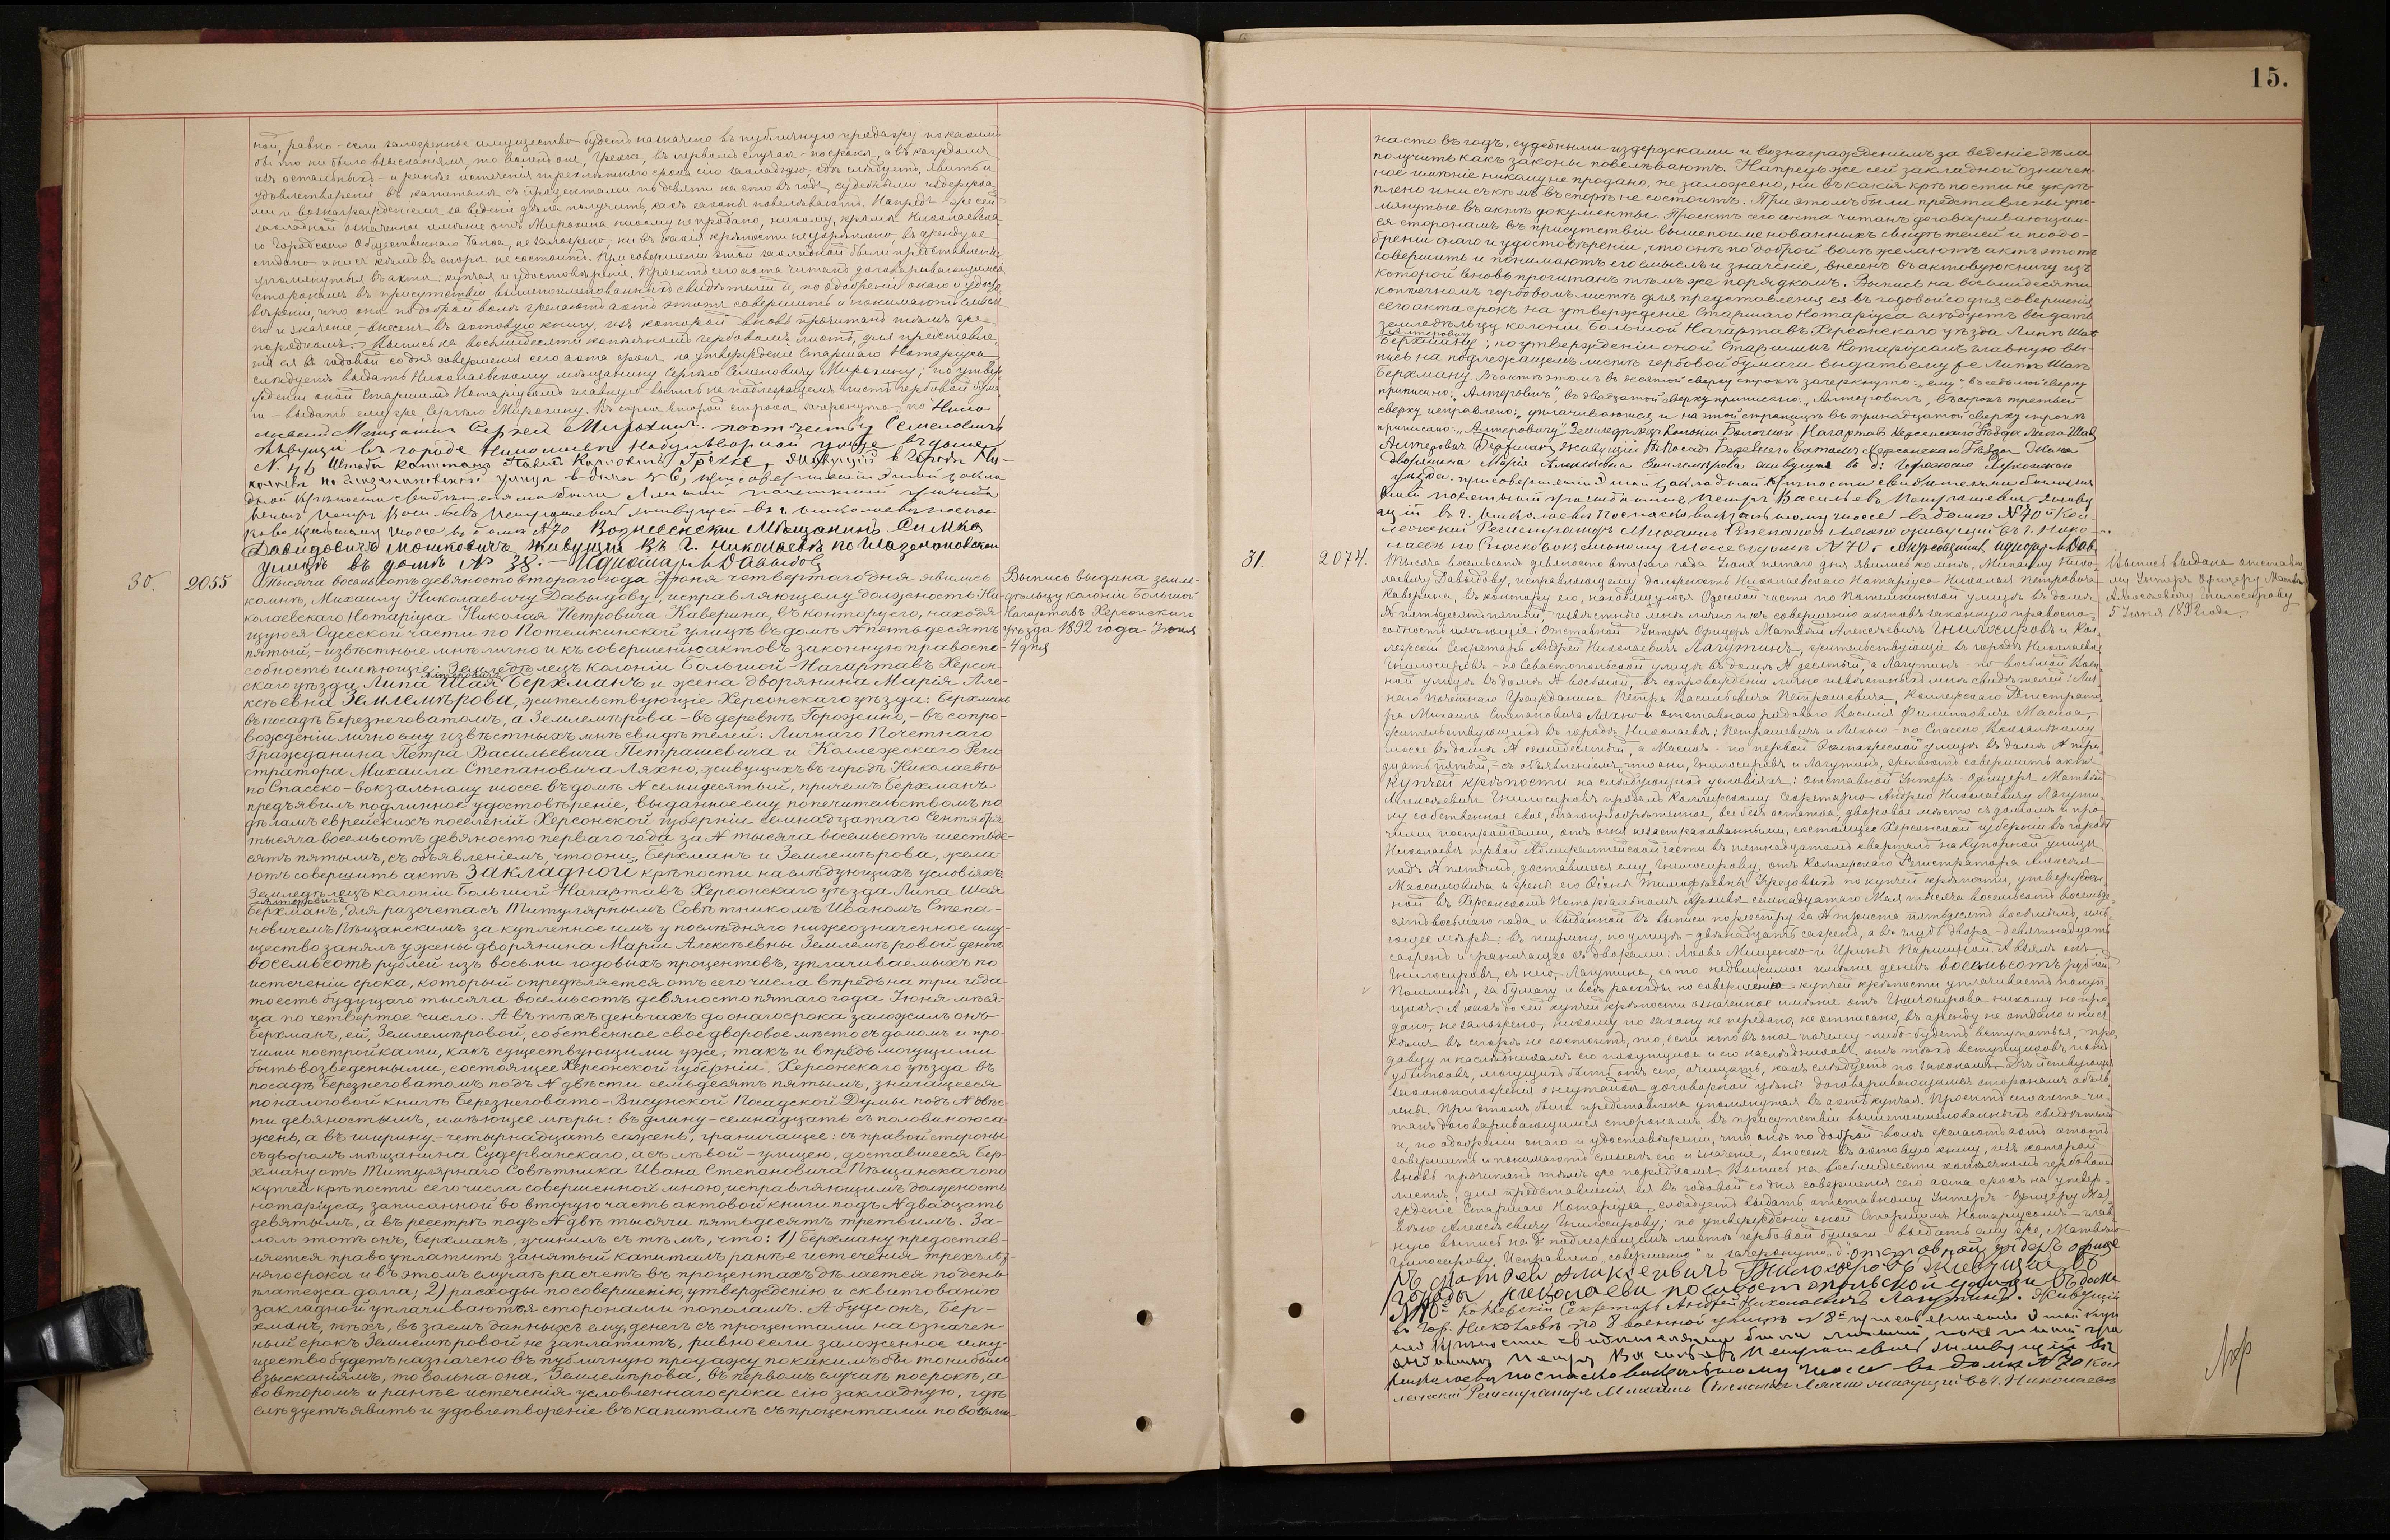 15.
ной, равно - если заложенное имущество будетъ назначено въ публичную продажу по какимъ
бы то ни было взысканіямъ, то воленъ онъ, Грекке, въ первомъ случаѣ - по срокѣ, а въ каждомъ
изъ остальныхъ - и ранѣе истеченія трехлѣтняго срока сію закладную, гдѣ слѣдуетъ, явить и
удовлетвореніе въ капиталѣ съ процентами по девяти на сто въ годъ, судебными издержка-
ми и вознагражденіемъ за веденіе дѣла получить, какъ законы повелѣваютъ. Напредь же сей
закладной означенное имѣніе отъ Мирохина никому не продано, никому, кромѣ Николаевска-
го Городского Общественнаго Банка, не заложено, ни въ какія крѣпости не укрѣплено, въ аренду не
отдано и ни съ кѣмъ въ спорѣ не состоитъ. При совершеніи этой закладной были представлены
упомянутыя въ актѣ: купчая и удостовѣреніе. Проектъ сего акта читанъ договаривающимся
сторонамъ въ присутствіи вышепоименованныхъ свидѣтелей и, по одобреніи онаго и удосто-
вѣреніи, что они по доброй волѣ желаютъ актъ этотъ совершить и понимаютъ смыслъ
его и значеніе, - внесенъ въ актовую книгу, изъ которой вновь прочитанъ тѣмъ же
порядкомъ. Выпись на восьмидесяти копѣечномъ гербовомъ листѣ, для представле-
нія ея въ годовой со дня совершенія сего акта срокъ на утвержденіе Старшаго Нотаріуса
слѣдуетъ выдать Николаевскому мѣщанину Сергѣю Семеновичу Мирохину; по утверж-
деніи оной Старшимъ Нотаріусомъ главную выпись на подлежащемъ листѣ гербовой бума-
ги - выдать ему же, Сергѣю Мирохину. Въ сорокъ второй строкѣ зачеркнуто: "по" Нико-
лаевский Мещанин Сергей Мирохин. по отчеству Семенович
живущи въ городе Николаеве
Вознесенскій Мѣщанинъ Симха
Давидовичъ Мошковичъ живущій въ г. Николаевѣ по Глазенаповской
улицѣ въ домѣ № 38. - И.д. нотар. МДавыдов
30. 2055
Тысяча восемьсотъ девяносто втораго года Іюня четвертаго дня явились
ко мнѣ, Михаилу Николаевичу Давыдову, исправляющему должность Ни-
колаевскаго Нотаріуса Николая Петровича Каверина, въ контору его, находя-
щуюся Одесской части по Потемкинской улицѣ въ домѣ № пятьдесятъ
пятый, - извѣстные мнѣ лично и къ совершенію актовъ законную правоспо-
собность имѣющіе: Земледѣлецъ колоніи Большой-Нагартавъ Херсон-
скаго уѣзда, Липа Шая Алтеровичъ Берхманъ и жена дворянина Марія Але-
ксѣевна Землемѣрова, жительствующіе Херсонскаго уѣзда: Берхманъ
въ посадѣ Березнеговатомъ, а Землемѣрова - въ деревнѣ Горожино, - въ сопро-
вожденіи лично ему извѣстныхъ мнѣ свидѣтелей: Личнаго Почетнаго
Гражданина Петра Васильевича Петрашевича и Коллежскаго Реги-
стратора Михаила Степановича Ляхно, живущихъ въ городѣ Николаевѣ
по Спасско-вокзальному шоссе въ домѣ № семидесятый, причемъ Берхманъ
предъявилъ подлинное удостовѣреніе, выданное ему попечительствомъ по
дѣламъ еврейскихъ поселеній Херсонской губерніи семнадцатаго Сентября
тысяча восемьсотъ девяносто перваго года за № тысяча восемьсотъ шестьде-
сятъ пятымъ, съ объявленіемъ, что они, Берхманъ и Землемѣрова, жела-
ютъ совершить актъ Закладной крѣпости на слѣдующихъ условіяхъ:
Земледѣлецъ колоніи Большой-Нагартавъ Херсонскаго уѣзда Липа Шая
Алтеровичъ
Берхманъ, для разсчета съ Титулярнымъ Совѣтникомъ Иваномъ Степа-
новичемъ Пѣщанскимъ за купленное имъ у послѣдняго нижеозначенное иму-
щество занялъ у жены дворянина Маріи Алексѣевны Землемѣровой денегъ
восемьсотъ рублей изъ восьми годовыхъ процентовъ, уплачиваемыхъ по
истеченіи срока, который опредѣляется отъ сего числа впредь на три года
то есть будущаго тысяча восемьсотъ девяносто пятаго года Іюня мѣся-
ца по четвертое число. А въ тѣхъ деньгахъ до онаго срока заложилъ онъ
Берхманъ, ей, Землемѣровой, собственное свое дворовое мѣсто съ домомъ и про-
чими постройками, какъ существующими уже, такъ и впредь могущими
быть возведенными, состоящее Херсонской губерніи, Херсонскаго уѣзда въ
посадѣ Березнеговатомъ подъ № двѣсти семьдесятъ пятымъ, значащееся
по налоговой книгѣ Березнеговато-Висунской Посадской Думы подъ № двѣс-
ти девяностымъ, имѣющее мѣры: въ длину - семнадцать съ половиною са-
жень, а въ ширину - четырнадцать сажень, граничащее: съ правой стороны
съ дворомъ мѣщанина Судерванскаго, а съ лѣвой - улицею, доставшееся Бер-
хману отъ Титулярнаго Совѣтника Ивана Степановича Пѣщанскаго по
купчей крѣпости сего числа совершенной мною, исправляющимъ должность
нотаріуса, записанной во вторую часть актовой книги подъ № двадцать
девятымъ, а въ реестрѣ подъ № двѣ тысячи пятьдесятъ третьимъ. За-
логъ этотъ онъ, Берхманъ, учинилъ съ тѣмъ, что: 1) Берхману предостав-
ляется право уплатить занятый капиталъ ранѣе истеченія трехлѣт-
няго срока и въ этомъ случаѣ расчетъ въ процентахъ дѣлается по день
платежа долга; 2) расходы по совершенію, утвержденію и сквитованію
закладной уплачиваются сторонами пополамъ. А буде онъ, Бер-
хманъ, тѣхъ, въ заемъ данныхъ ему, денегъ съ процентами на означен-
ный срокъ Землемѣровой не заплатитъ, равно если заложенное иму-
щество будетъ назначено въ публичную продажу по какимъ бы то ни было
взысканіямъ, то вольна она, Землемѣрова, въ первомъ случаѣ по срокѣ, а
во второмъ и ранѣе истеченія условленнаго срока сію закладную, гдѣ
слѣдуетъ явить и удовлетвореніе въ капиталѣ съ процентами по восьми
Выпись выдана земле-
дѣльцу колоніи Большой
Нагартавъ Херсонскаго
уѣзда 1892 года Іюня
4 дня
на сто въ годъ, судебными издержками и вознагражденіемъ за веденіе дѣла
получить какъ законы повелѣваютъ. Напредь же сей закладной означен-
ное имѣніе никому не продано, не заложено, ни въ какія крѣпости не укрѣ-
плено и ни съ кѣмъ въ спорѣ не состоитъ. При этомъ были представлены упо-
мянутые въ актѣ документы. Проектъ сего акта читанъ договаривающим-
ся сторонамъ въ присутствіи вышепоименованныхъ свидѣтелей и по одо-
бреніи онаго и удостовѣреніи, что онѣ по доброй волѣ желаютъ актъ этотъ
совершить и понимаютъ его смыслъ и значеніе, внесенъ въ актовую книгу изъ
которой вновь прочитанъ тѣмъ же порядкомъ. Выпись на восьмидесяти
копѣечномъ гербовомъ листѣ для представленія ея въ годовой со дня совершенія
сего акта срокъ на утвержденіе Старшаго Нотаріуса слѣдуетъ выдать
земледѣльцу колоніи Большой Нагартавъ Херсонскаго уѣзда Липѣ Шаѣ
Алтеровичу
Берхману; по утвержденіи оной Старшимъ Нотаріусомъ главную вы-
пись на подлежащемъ листѣ гербовой бумаги выдать ему же Липѣ Шаѣ
Берхману. Въ актѣ этомъ въ десятой сверху строкѣ зачеркнуто: "ему", въ седьмой сверху
приписано: "Алтеровичъ", въ двадцатой сверху приписано: "Алтеровичъ", въ сорокъ третьей
сверху исправлено: "уплачиваются" и на этой страницѣ въ тринадцатой сверху строкѣ
приписано: "Алтеровичу". Земледѣлецъ Колоніи Большой Нагартавъ Херсонскаго Уѣзда Липа Шая
Алтеровичъ Берхманъ, живущій въ Посадѣ Березнеговатомъ Херсонскаго Уѣзда Жена
дворянина Марія Алексѣевна Землемѣрова живущая въ д: Горожено Херсонскаго
уѣзда. при совершеніи Этой Закладной крѣпости свидѣтелями были лич
ный почетный гражданинъ петръ Васильевъ Петрашевичъ живу
щій въ г. николаевѣ по спасковокзальному шоссе въ домѣ № 70 й Кол
лежский Регистраторъ Михаилъ Степановъ Ляхно живущий въ г. Нико-
лаевѣ по Спасковокзальному Шоссе въ домѣ № 70.
31. 2074.
Тысяча восемьсотъ девяносто втораго года Іюня пятаго дня явились ко мнѣ, Михаилу Нико-
лаевичу Давыдову, исправляющему должность Николаевскаго Нотаріуса Николая Петровича
Каверина, въ контору его, находящуюся Одесской части по Потемкинской улицѣ въ домѣ
№ пятьдесятъ пятый, извѣстные мнѣ лично и къ совершенію актовъ законную правоспо-
собность имѣющіе: Отставной Унтеръ Офицеръ Матвѣй Алексѣевичъ Гнилосировъ и Кол-
лежскій Секретарь Андрей Николаевичъ Лагутинъ, жительствующіе въ городѣ Николаевѣ:
Гнилосировъ - по Севастопольской улицѣ въ домѣ № десятый, а Лагутинъ - по восьмой Воен-
ной улицѣ въ домѣ № восьмой, въ сопровожденіи лично извѣстныхъ мнѣ свидѣтелей: Лич-
наго Почетнаго Гражданина Петра Васильевича Петрашевича, Коллежскаго Регистрато-
ра Михаила Степановича Ляхно и отставнаго рядоваго Василія Филипповича Масича,
жительствующихъ въ городѣ Николаевѣ: Петрашевичъ и Ляхно - по Спасско-Вокзальному
шоссе въ домѣ № семидесятый, а Масичъ - по первой улицѣ въ домѣ № три-
дцать пятый, - съ объявленіемъ, что они, Гнилосировъ и Лагутинъ, желаютъ совершить актъ
купчей крѣпости на слѣдующихъ условіяхъ: отставной Унтеръ-Офицеръ Матвѣй
Алексѣевичъ Гнилосировъ продалъ Коллежскому Секретарю Андрею Николаевичу Лагути-
ну собственное свое, благопріобрѣтенное, все безъ остатка, дворовое мѣсто съ домомъ и про-
чими постройками, отъ огня незастрахованными, состоящее Херсонской губерніи въ городѣ
Николаевѣ первой Адмиралтейской части въ пятнадцатомъ кварталѣ на Купорной улицѣ
подъ № пятымъ, доставшееся ему, Гнилосирову, отъ Коллежскаго Регистратора Алексѣя
Максимовича и жены его Тимофѣевны по купчей крѣпости, утвержден-
ной въ Херсонскомъ Нотаріальномъ Архивѣ семнадцатаго Мая тысяча восемьсотъ восемьде-
сятъ восьмаго года и выданной въ выписи по реестру за № триста пятьдесятъ восьмымъ, имѣ-
ющее мѣры: въ ширину, по улицѣ - двѣнадцать сажень, а въ глубь двора - девятнадцать
сажень и граничащее съ дворами: Якова Мищенко и Ирины Паршиной. А взялъ онъ
Гнилосировъ, съ него, Лагутина, за то недвижимое имѣніе денегъ восемьсотъ рублей.
Пошлины, за бумагу и всѣ расходы по совершенію купчей крѣпости уплачиваетъ покуп-
щикъ. А какъ до сей купчей крѣпости означенное имѣніе отъ Гнилосирова никому не про-
дано, не заложено, никому по закону не передано, не отписано, въ аренду не отдано и ни съ
кѣмъ въ спорѣ не состоитъ, то, если кто въ оное почему-либо будетъ вступаться, - про-
давцу и наслѣдникамъ его покупщика и его наслѣдниковъ отъ тѣхъ вступщиковъ и отъ
убытковъ, могущихъ быть отъ сего, очищать, какъ слѣдуетъ по законамъ. Дѣйствующія
законоположенія о неутайкѣ договорной цѣны договаривающимся сторонамъ объяв-
лены. При этомъ была представлена упомянутая въ актѣ купчая. Проектъ сего акта чи-
танъ договаривающимся сторонамъ, въ присутствіи вышепоименованныхъ свидѣтелей
и, по одобреніи онаго и удостовѣреніи, что онѣ по доброй волѣ желаютъ актъ этотъ
совершить и понимаютъ смыслъ его и значеніе, внесенъ въ актовую книгу, изъ которой
вновь прочитанъ тѣмъ же порядкомъ. Выпись на восьмидесяти копѣечномъ гербовомъ
листѣ, для представленія ея въ годовой со дня совершенія сего акта срокъ на утвер-
жденіе Старшаго Нотаріуса, слѣдуетъ выдать отставному Унтеръ-Офицеру Мат-
вѣю Алексѣевичу Гнилосирову; по утвержденіи оной Старшимъ Нотаріусомъ глав-
ную выпись на подлежащемъ листѣ гербовой бумаги - выдать ему же, Матвѣю
Гнилосирову. Исправлено "совершенію" и зачеркнуто "д". отставной
Матвей Гнилосировъ
Колежскій Секретарь Андрей Николаевичъ Лагутинъ. Живущій
въ Гор. Николаевѣ по 8 военной улицѣ № 8й при совершеніи Этой куп
чей крѣпости свидѣтелями были личный почетный гра
жданинъ петръ Васильевъ Петрашевичъ живущій въ г
николаевѣ по спасковокзальному шоссе въ домѣ № 70 Кол
лежский Регистраторъ Михаилъ Степановъ Ляхно живущий въ г. Николаевѣ
Выпись выдана отставно-
му Унтеръ Офицеру Матвѣю
Алексѣевичу Гнилосирову
5 Іюня 1892 года.